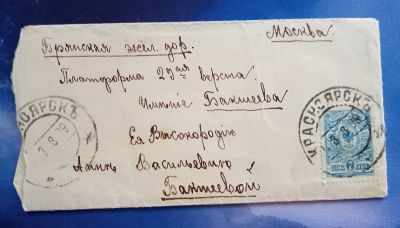 Москва.
Брянская жел. дор.
Платформа 29ая верста
Имѣнiе Бакшеева
Ея Высокородiю
Аннѣ Васильевнѣ
Бакшеевой
НОЯРСКЪ
КРАСНОЯРСКЪ
7